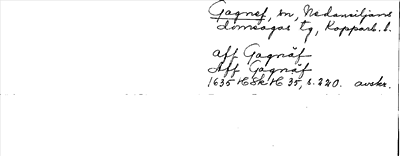 Gagnef, sn, Nedansiljans
domsagas tg, Kopparb. l.
aff Gagnäf
Aff Gagnäf
1635 HSkH 35, s. 220. avskr.